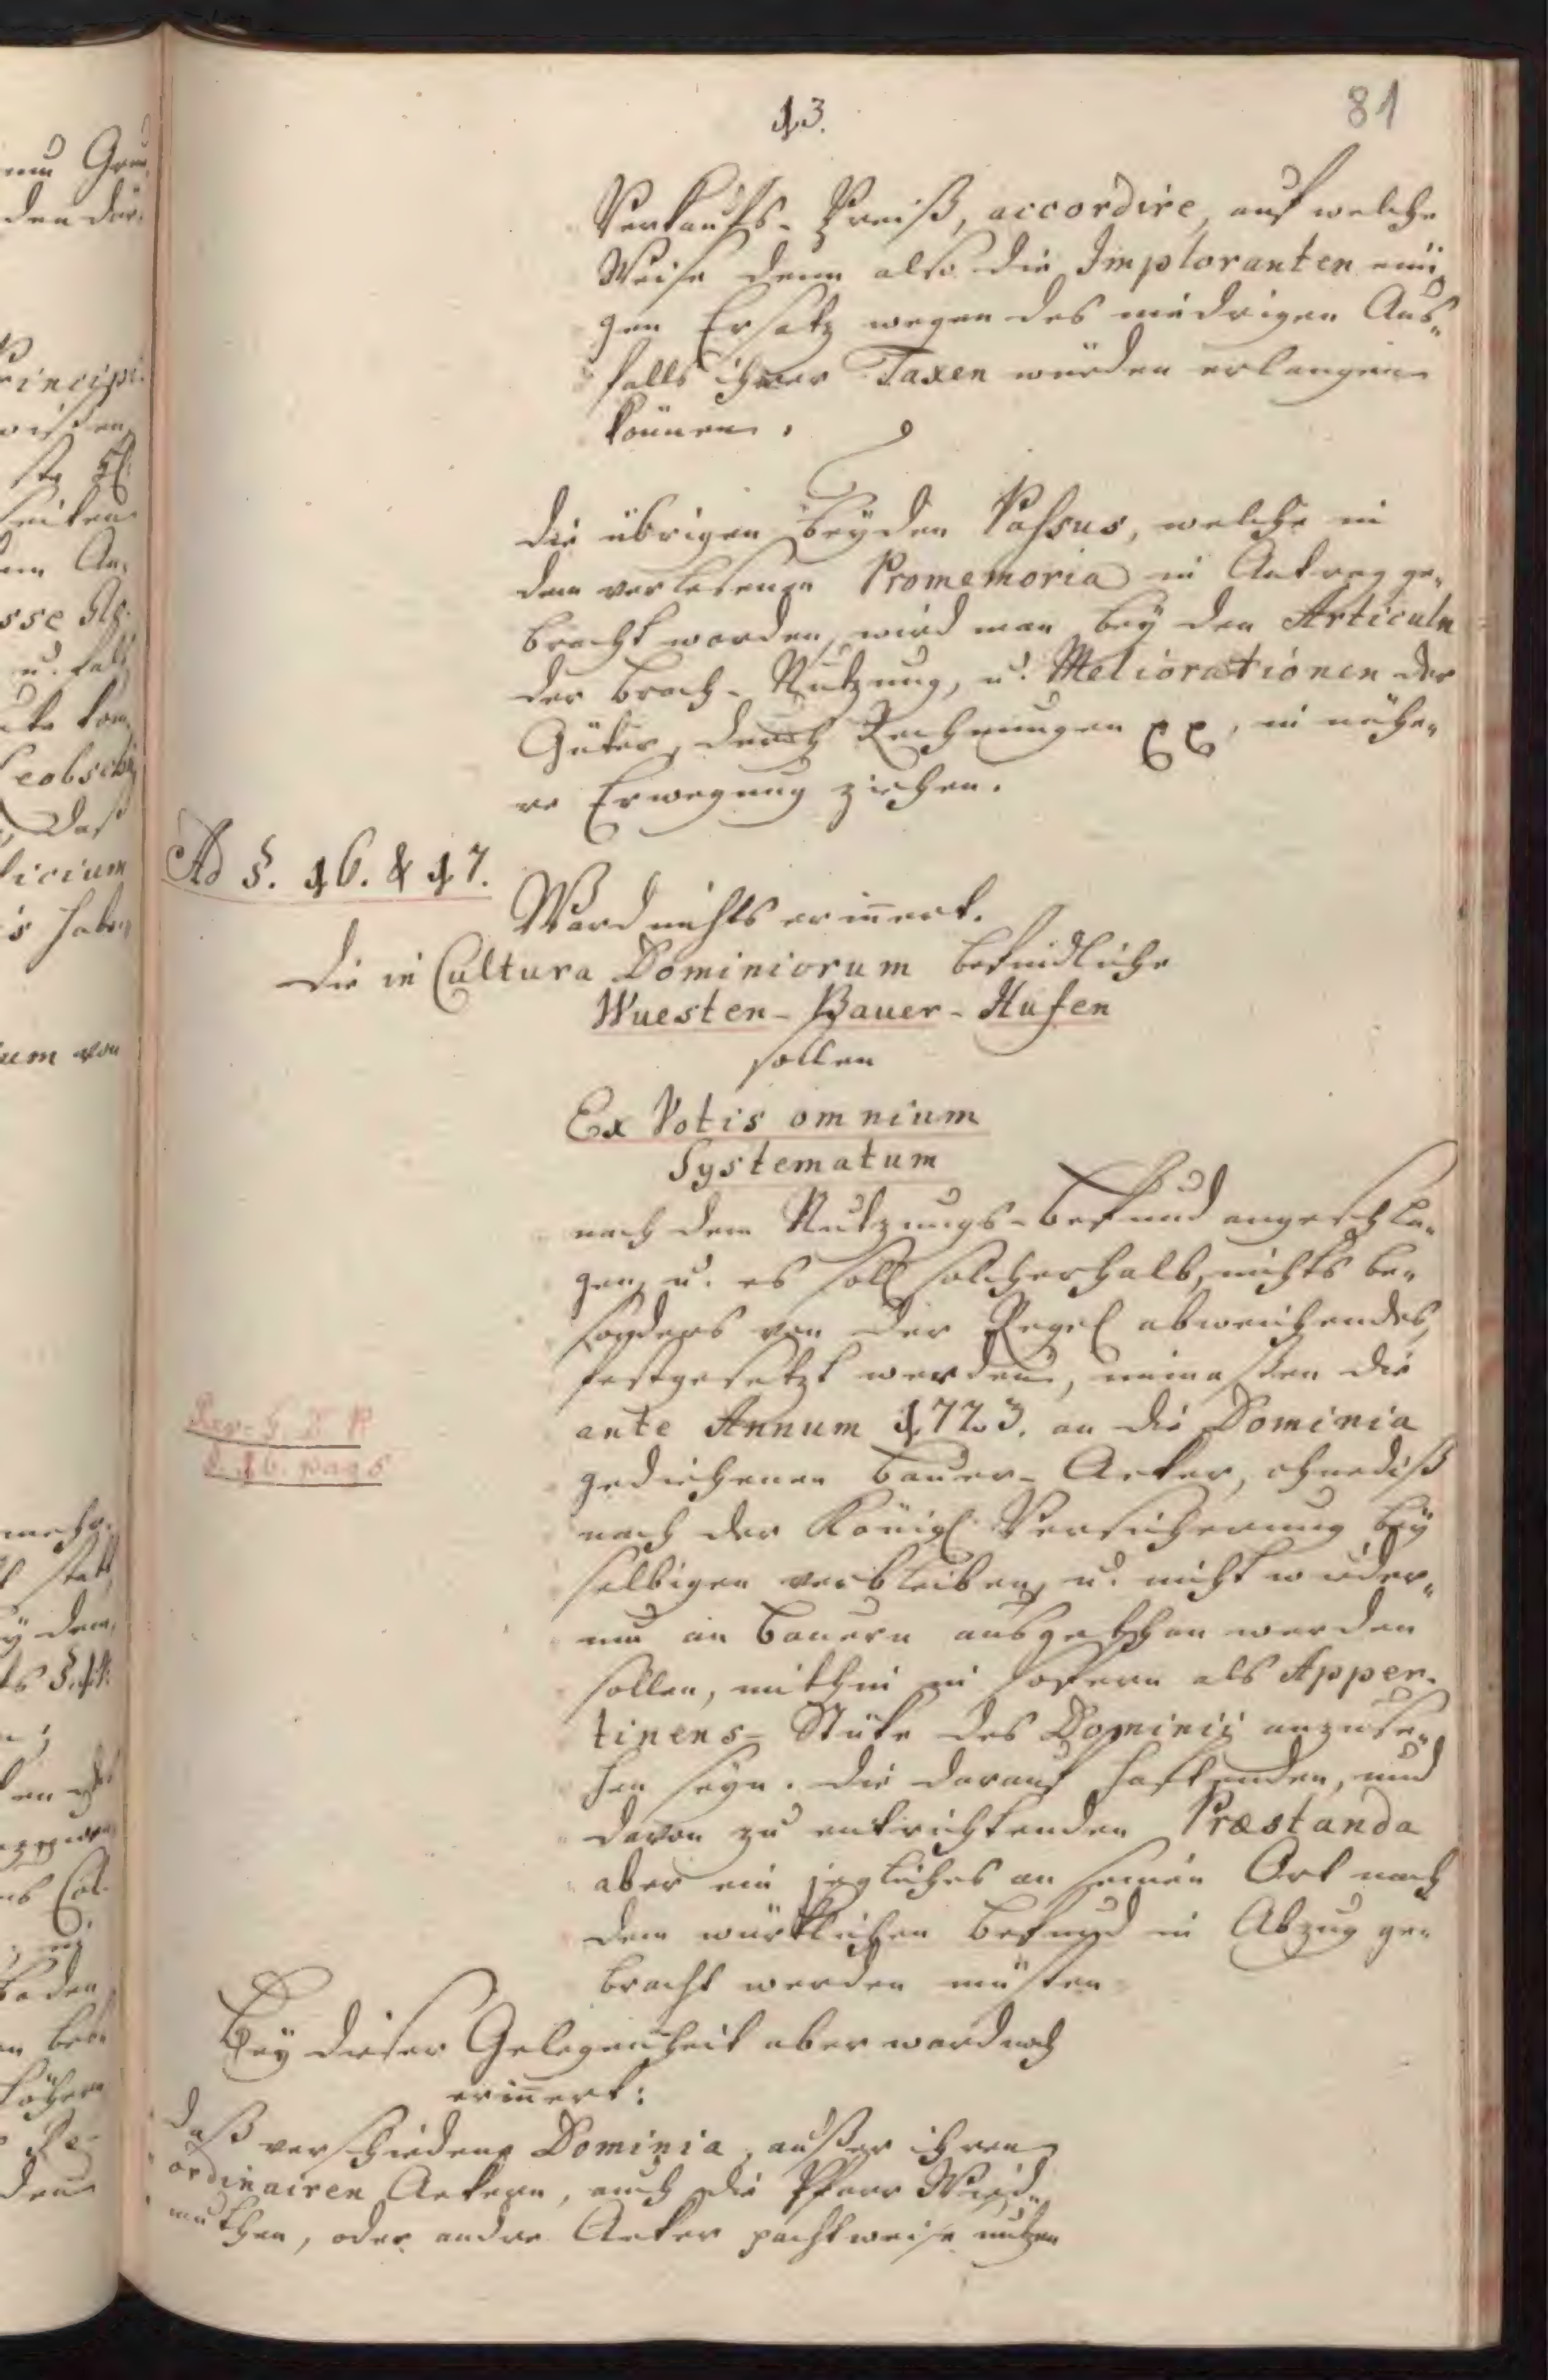 13.
81
Verkaufs-Preiß, accordire, auf welche
Weise denn also die Imploranten eini„
gen Ersatz wegen des niedrigen Aus„
falls ihrer Taxen würden erlangen
können.
die übrigen beyden Passus, welche in
dem verlesenen Promemoria in Antrag ge„
bracht worden, wird man bey den Articuln
der Brach-Nutzung, u. Meliorationen der
Güter, durch Rechnungen pp, in nähe„
re Erwegung ziehen.
Ad §. 16. & 17.
Ward nichts erinnert.
Die in Cultura Dominiorum befindliche
Wuesten-Bauer-Hufen
sollen
Ex Votis omnium
Systematum
nach dem Nutzungs-Befund angeschla„
gen, u. es soll solcherhalb, nichts be„
sonders von der Regel abweichendes,
festgesetzt werden, immaßen die
ante Annum 1723. an die Dominia
gediehenen Bauer-Aeker, ohnediß
nach der Königl. Versicherung bey
selbigen verbleiben, u. nicht wieder„
um an Bauern ausgethan werden
sollen, mithin in sofern als Apper-
tinens-Stüke des Dominii anzuse„
hen seyn. Die darauf haftenden, und
davon zu entrichtenden Præstanda
aber ein jegliches an seinen Ort nach
dem würklichen Befund in Abzug ge„
bracht werden müsten
Rev. G. T. P.
§. 16. pag 5
Bey dieser Gelegenheit aber ward noch
erinnert:
daß verschiedene Dominia, außer ihren
ordinairen Aekern, auch die Pfarr Wied„
muthen, oder andre Aeker pachtweise nutzen